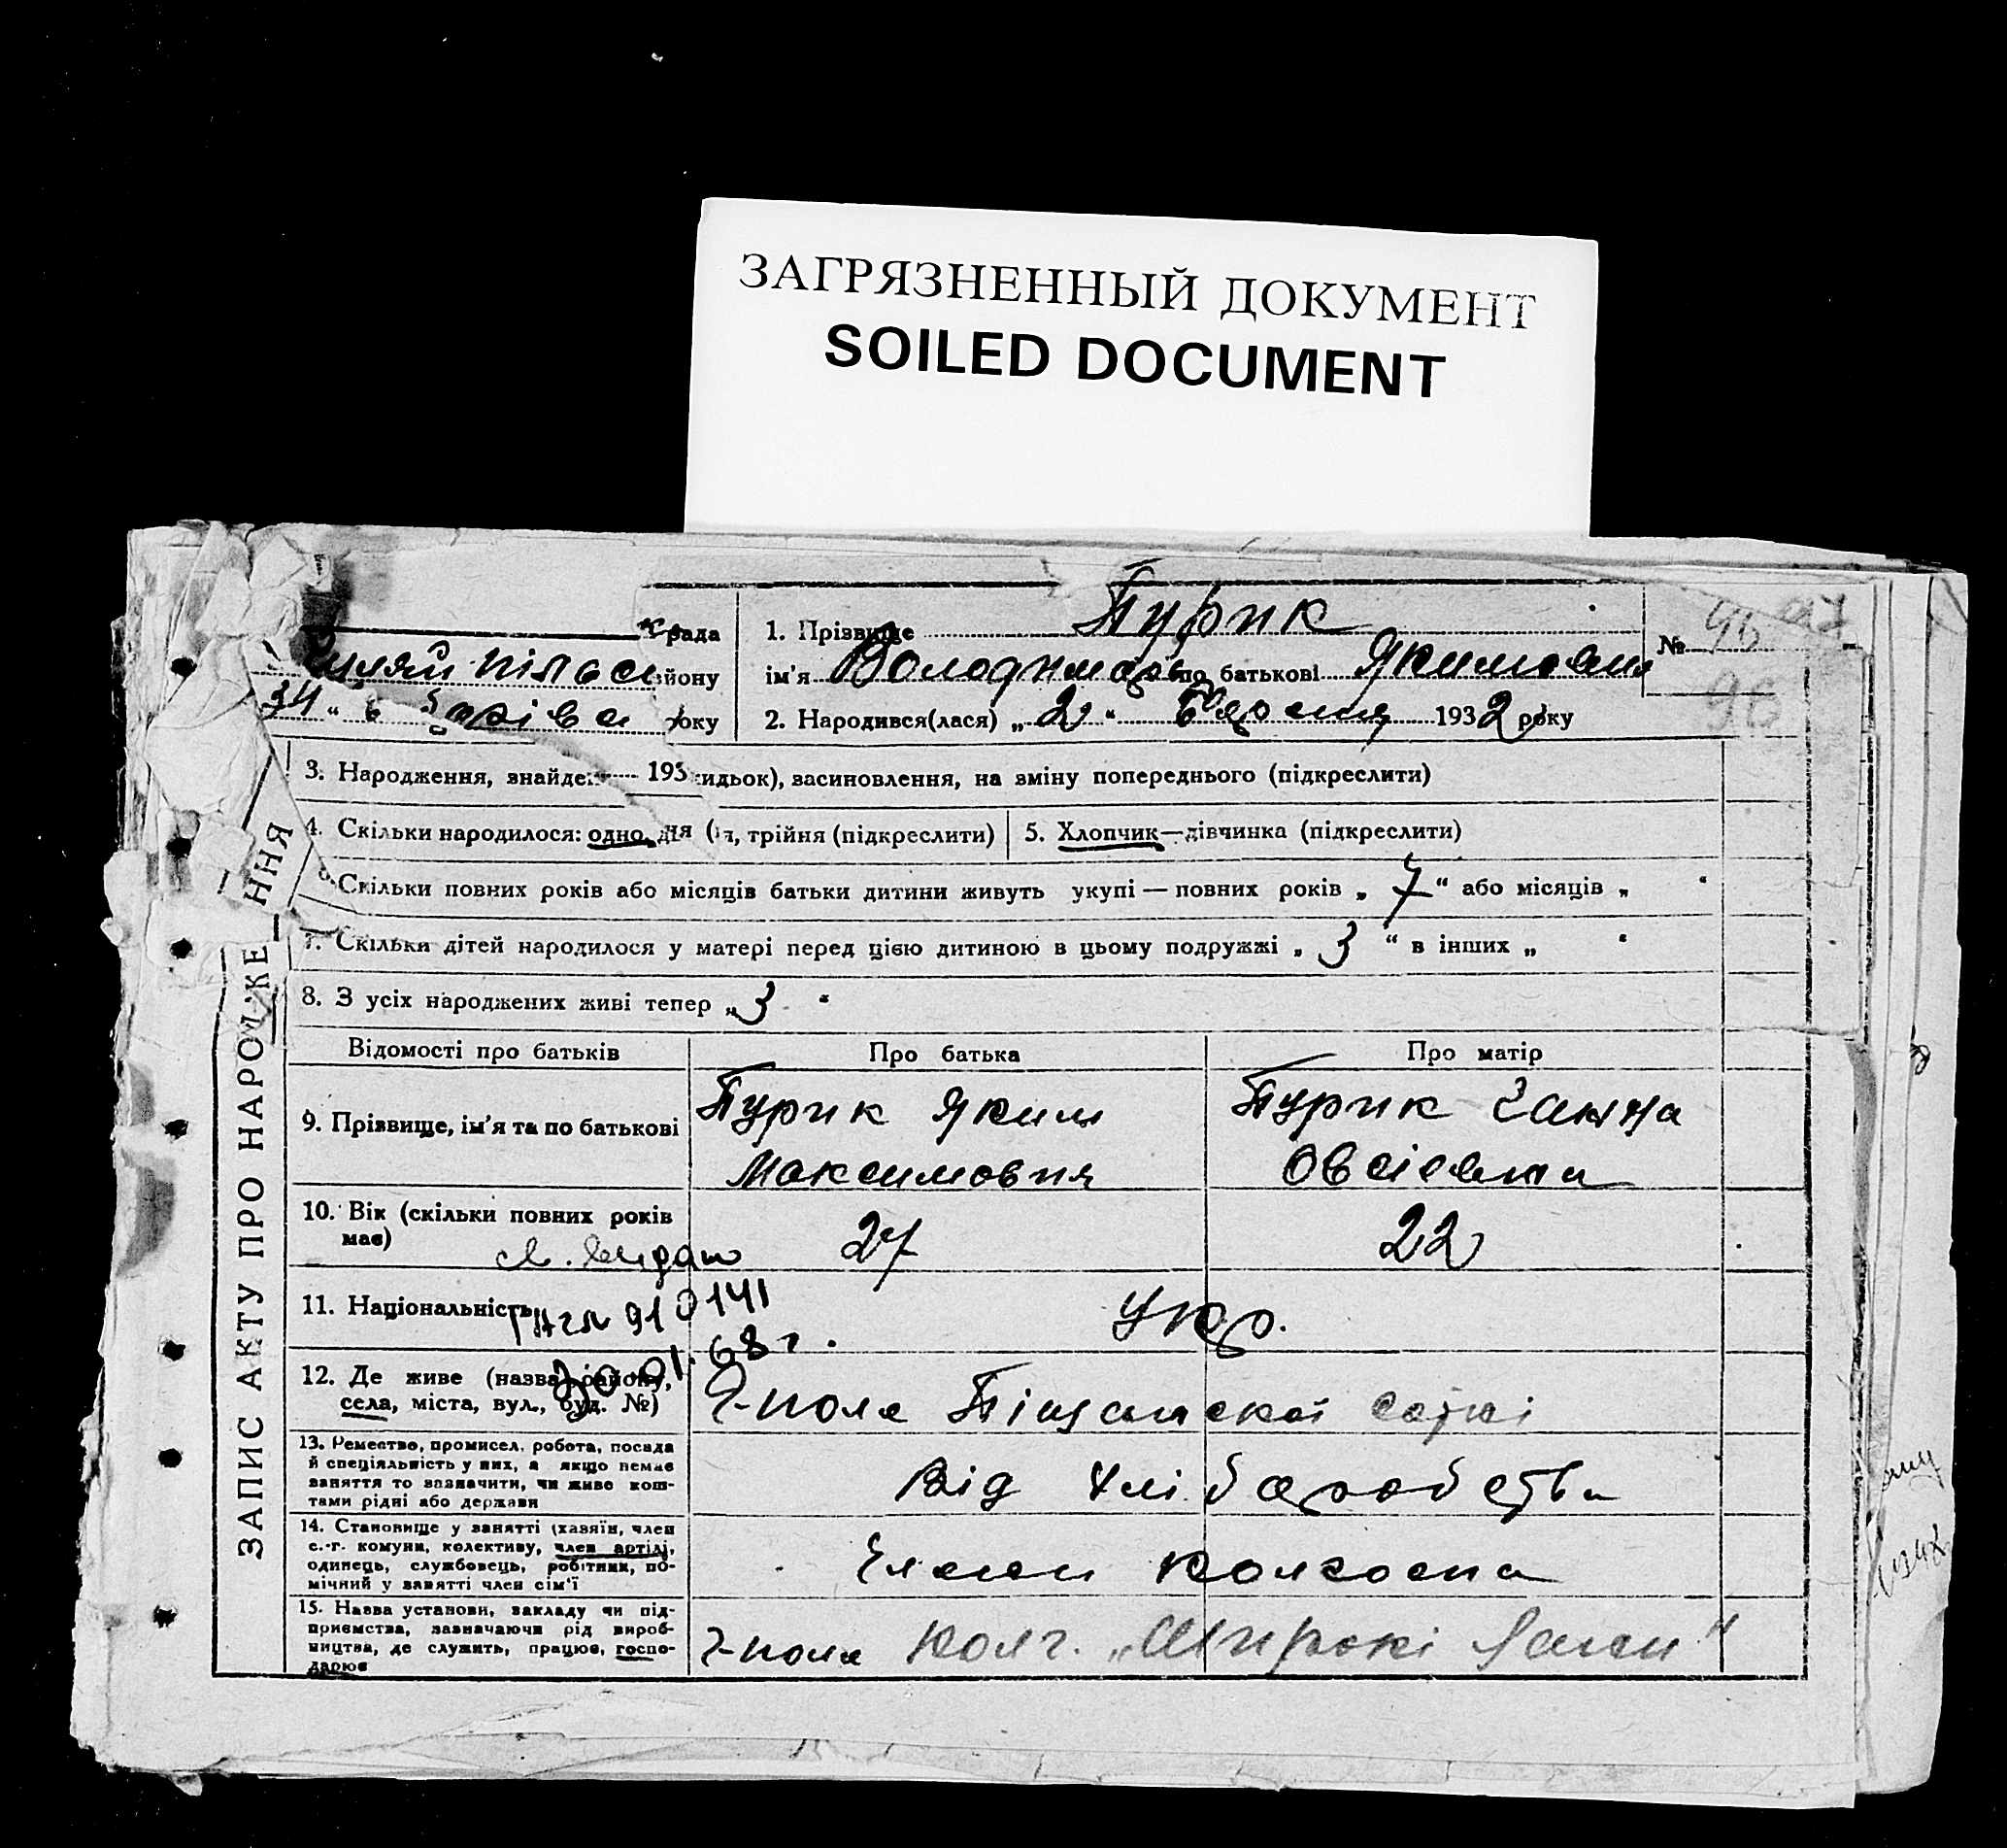 ЗАГРЯЗНЕННЫЙ ДОКУМЕНТ
SOILED DOCUMENT
рада
йону
34 "
року
1. Прізвище Пурик
ім'я Володимир по батькові Якимович
2. Народився(лася) „ 2 “ 1932 року
№ 96
96
3. Народження, знайде 193 идьок), засиновлення, на зміну попереднього (підкреслити)
4. Скільки народилося: одно, трійня (підкреслити)
5. Хлопчик—дівчинка (підкреслити)
Скільки повних років або місяців батьки дитини живуть укупі — повних років „ 7 “ або місяців „ “
7. Скільки дітей народилося у матері перед цією дитиною в цьому подружжі „ 3 “ в інших „ “
8. З усіх народжених живі тепер „ 3 “
ЗАПИС АКТУ ПРО НАРО ЖЕ ННЯ
Відомості про батьків
Про батька
Про матір
9. Прізвище, ім'я та по батькові
Пурик Яким
Максимович
Пурик Ганна
Овсіевна
10. Вік (скільки повних років
має)
27
22
11. Національність
910141
Укр.
68 г.
12. Де живе (назва району,
села, міста, вул., буд. №)
Г-поле Піщанської сотні
13. Ремество, промисел, робота, посада
й спеціяльність у них, а якщо немає
заняття то зазначити, чи живе кош-
тами рідні або держави
Від хліборобства
14. Становище у занятті (хазяїн, член
с.-г. комуни, колективу, член артілі,
одинець, службовець, робітник, по-
мічний у занятті член сім'ї
Члени колгоспа
15. Назва установи, закладу чи під-
приємства, зазначаючи рід вироб-
ництва, де служить, працює, госпо-
дарює
Г-поле Колг. „Широкі Лани"